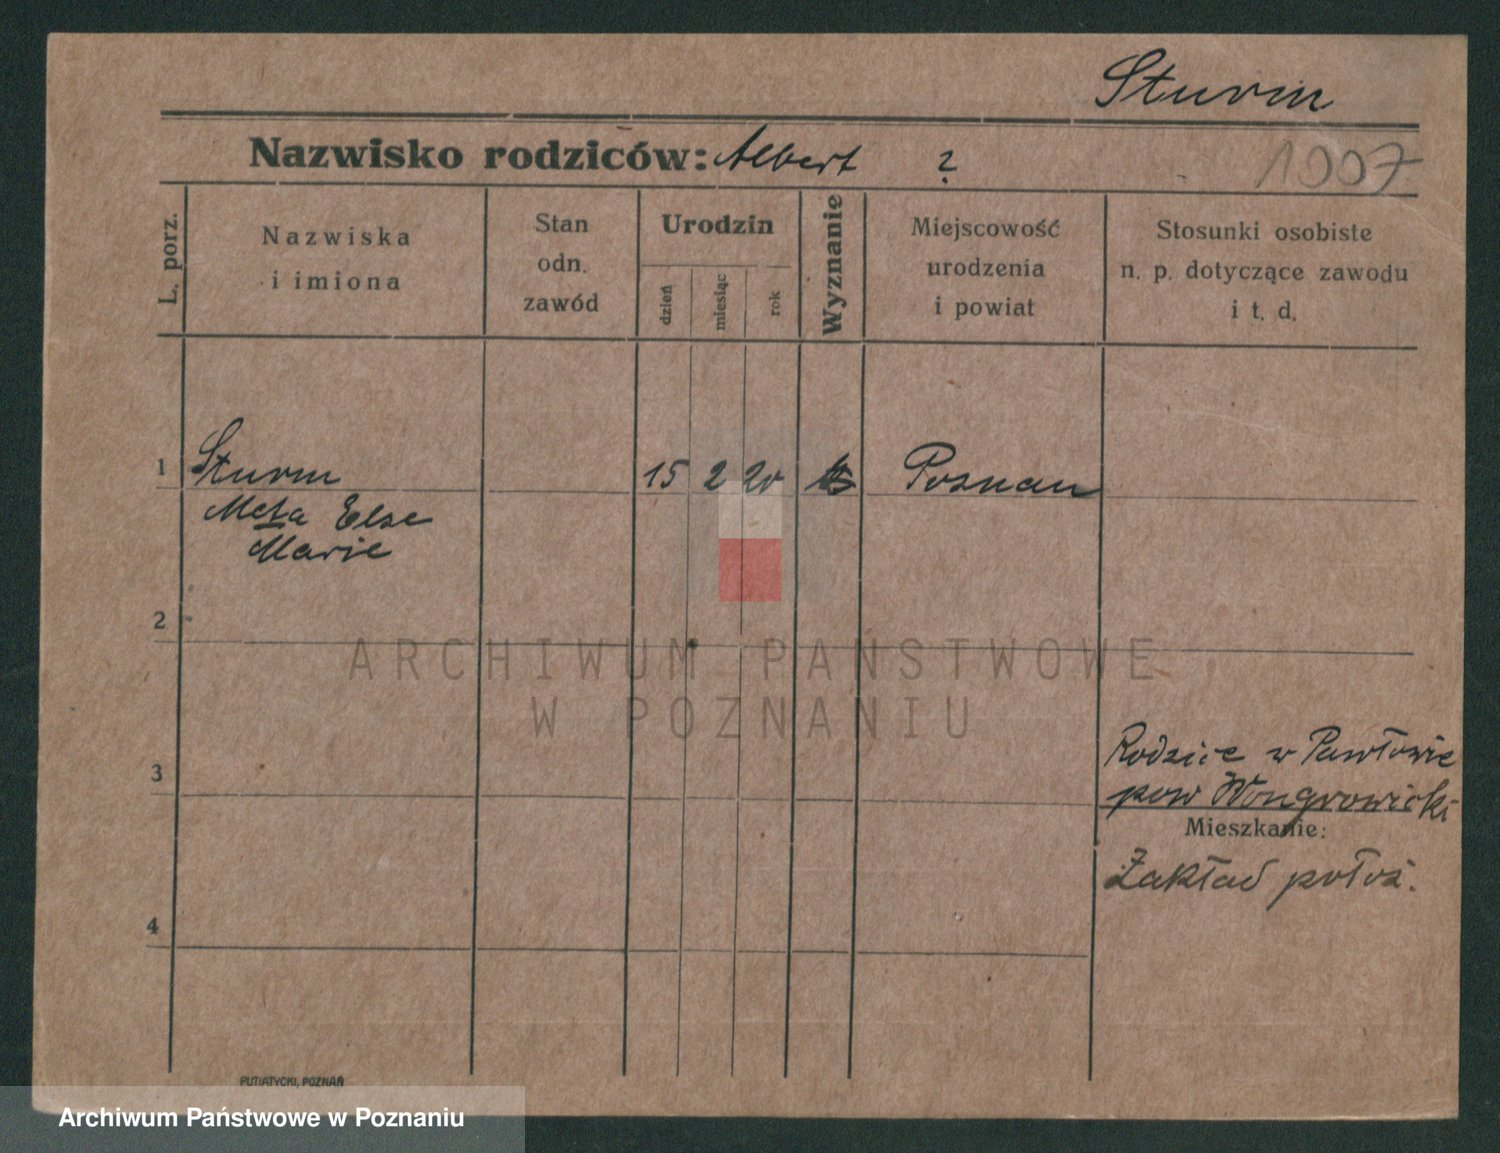 Sturm
Nazwisko rodziców: Albert ?
1007
L. porz.
Nazwiska
i imiona
Stan
odn.
zawód
Urodzin
dzień
miesiąc
rok
Wyznanie
Miejscowość
urodzenia
i powiat
Stosunki osobiste
n. p. dotyczące zawodu
i t. d.
1 Sturm 15 2 20 Poznan
Meta Else
Marie
2
ARCHIWUM PAŃSTWOWE
W POZNANIU
Rodzice w Pawłowie
3
pow Wongrowicki
Mieszkanie:
Zakład położ.
4
PUTIATYCKI, POZNAŃ
Archiwum Państwowe w Poznaniu